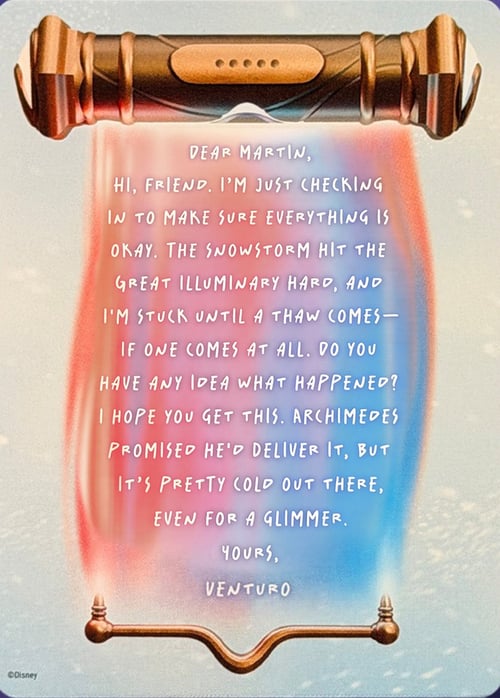 DEAR MARTIN,
HI, FRIEND. I'M JUST CHECKING
IN TO MAKE SURE EVERYTHING IS
OKAY. THE SNOWSTORM HIT THE
GREAT ILLUMINARY HARD, AND
I'M STUCK UNTIL A THAW COMES—
IF ONE COMES AT ALL. DO YOU
HAVE ANY IDEA WHAT HAPPENED?
I HOPE YOU GET THIS. ARCHIMEDES
PROMISED HE'D DELIVER IT, BUT
IT'S PRETTY COLD OUT THERE,
EVEN FOR A GLIMMER.
YOURS,
VENTURO
©Disney